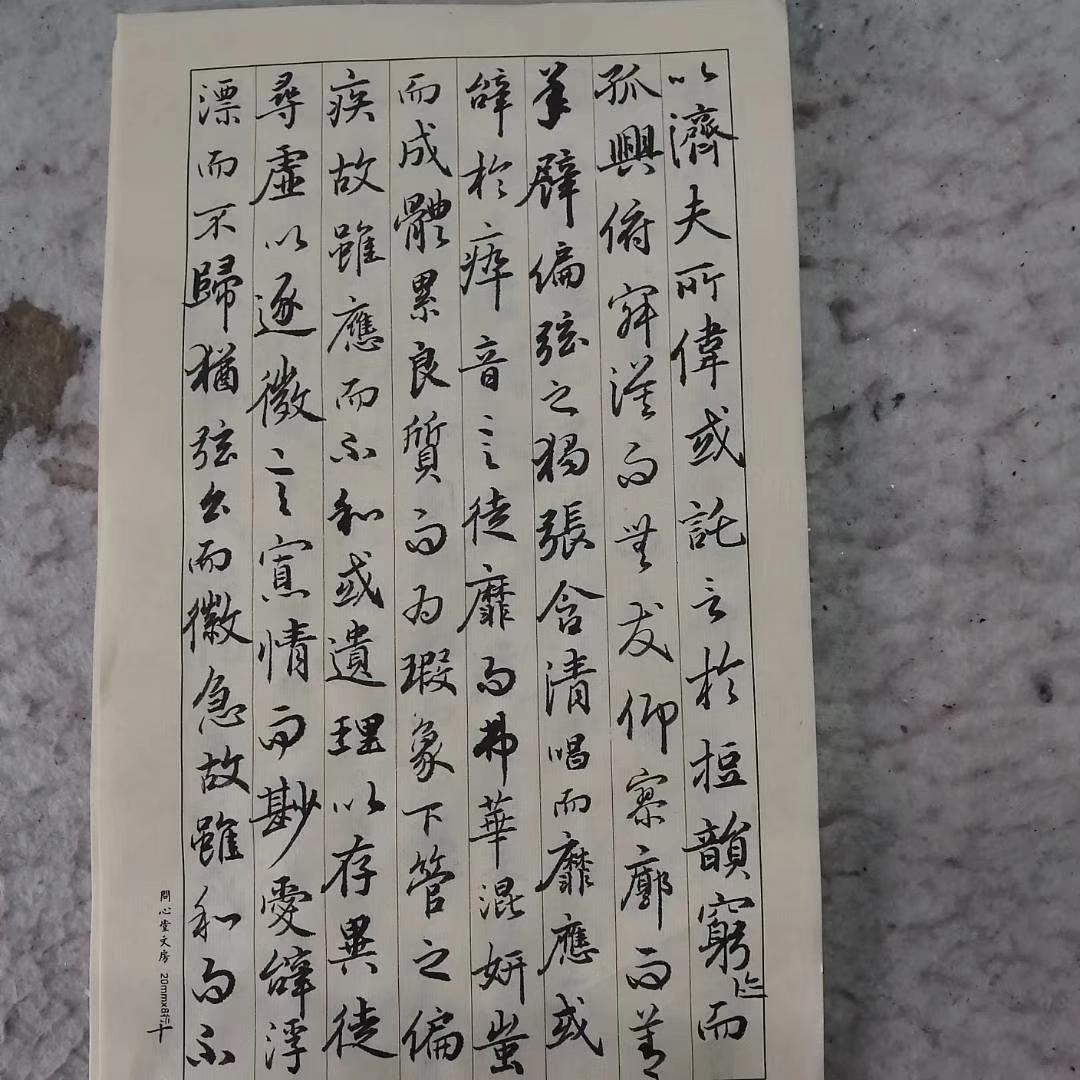 以濟夫所偉或託言於短韻窮迹而
孤興俯寂漠而無友仰寥廓而莫
承譬偏弦之獨張含清唱而靡應或
辭於瘁音言徒靡而弗華混妍蚩
而成體累良質而為瑕象下管之偏
疾故雖應而不和或遺理以存異徒
尋虛以逐微言寡情而尠愛辭浮
漂而不歸猶弦么而徽急故雖和而不
問心堂文房 20mmx8行
十